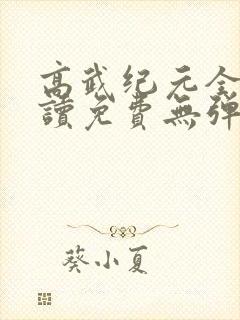 高武纪元全
讀免費無彈
葵小夏